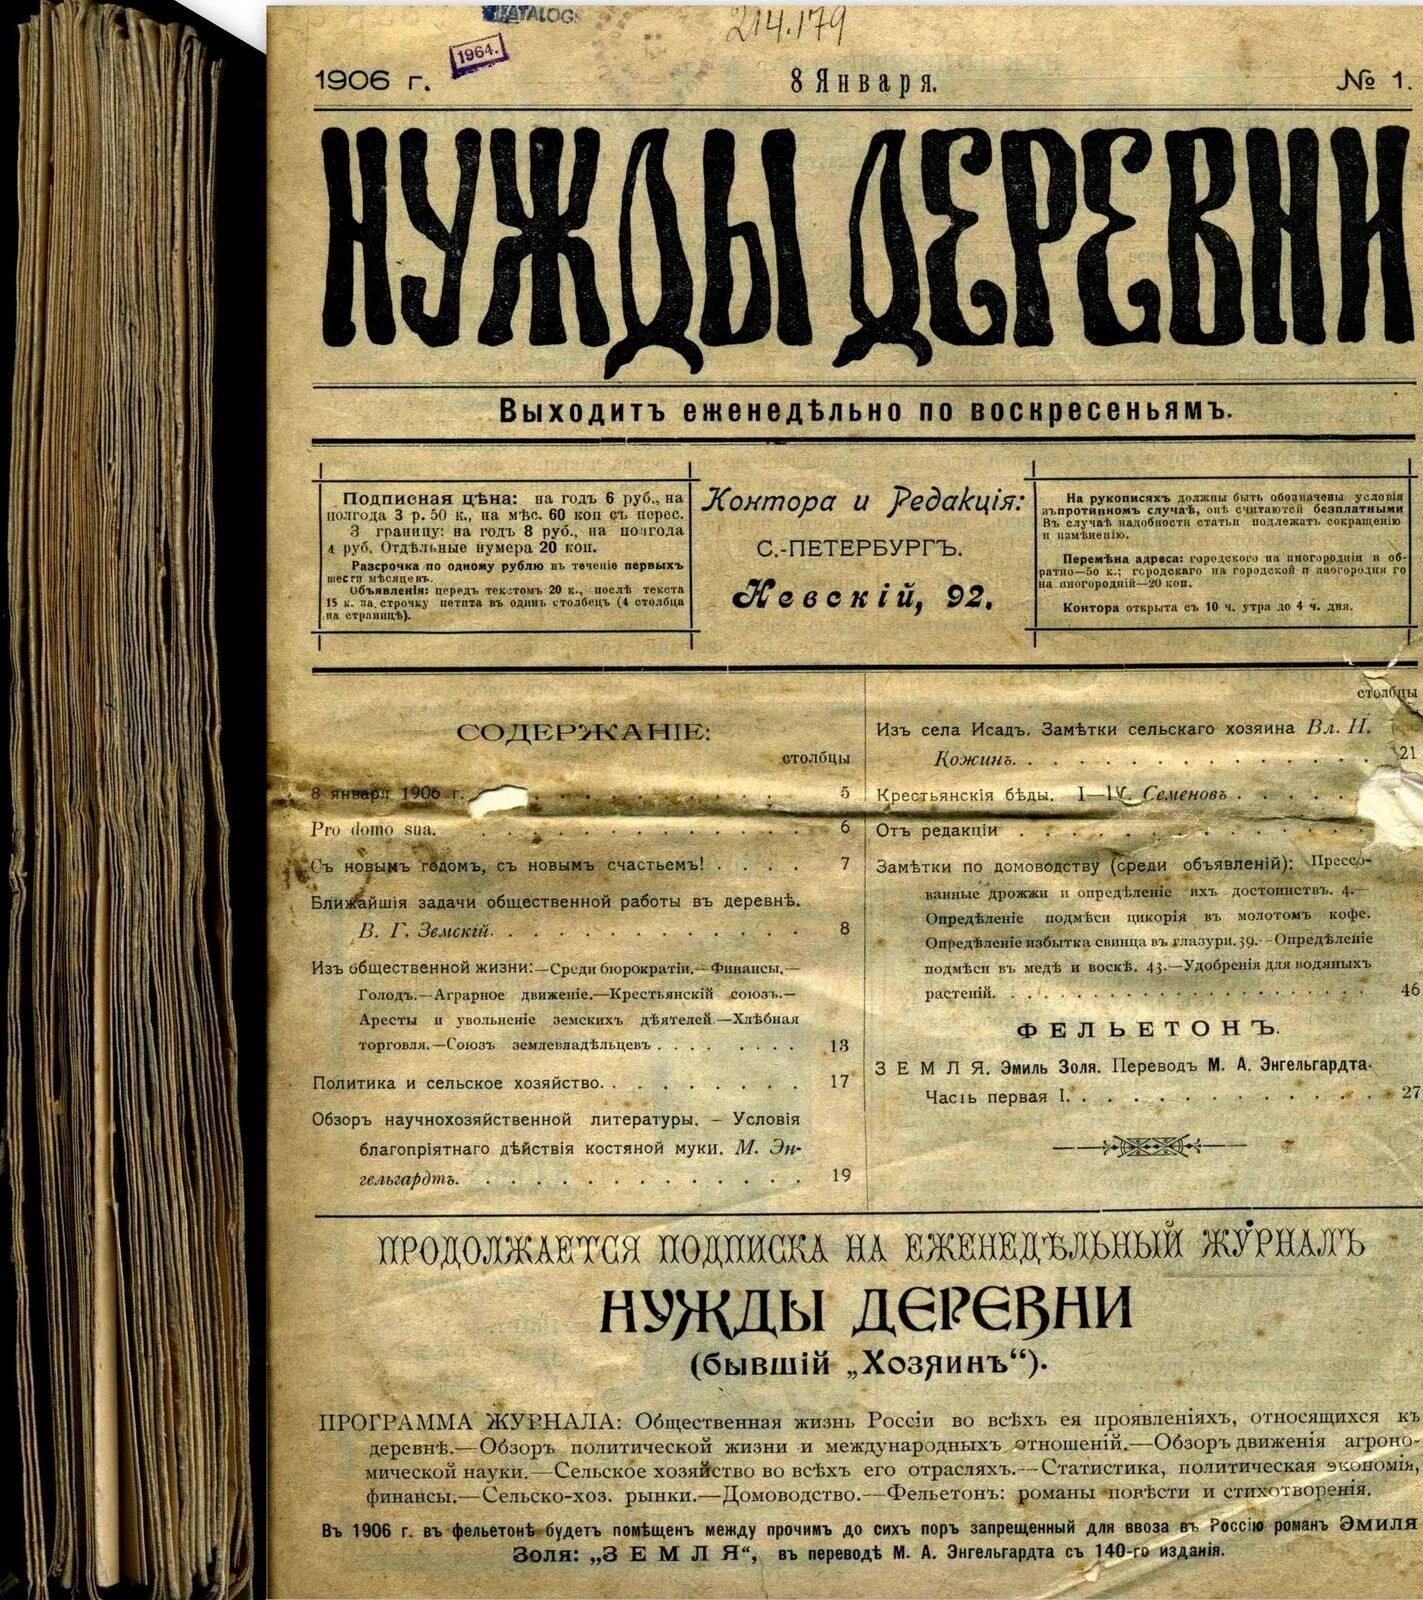 CATALOGS
214.179
1964.
1906 г.
8 Января.
№ 1.
НУЖДЫ ДЕРЕВНИ
Выходитъ еженедѣльно по воскресеньямъ.
Подписная цѣна: на годъ 6 руб., на
полгода 3 р. 50 к., на мѣс. 60 коп съ перес.
З границу: на годъ 8 руб., на полгода
4 руб. Отдѣльные нумера 20 коп.
Разсрочка по одному рублю въ теченіе первыхъ
шести мѣсяцевъ.
Объявленія: передъ текстомъ 20 к., послѣ текста
15 к. за строчку петита въ одинъ столбецъ (4 столбца
на страницѣ).
Контора и Редакція:
С.-ПЕТЕРБУРГЪ.
Невскій, 92.
На рукописяхъ должны быть обозначены условія
въпротивномъ случаѣ, онѣ считаются безплатными
Въ случаѣ надобности статьи подлежатъ сокращенію
и измѣненію.
Перемѣна адреса: городского на иногородній и об-
ратно—50 к.; городскаго на городской и иногородня го
на иногородній—20 коп.
Контора открыта съ 10 ч. утра до 4 ч. дня.
СОДЕРЖАНІЕ:
столбцы
8 января 1906 г. . . . . . . . . . . 5
Pro domo sua. . . . . . . . . . . . 6
Съ новымъ годомъ, съ новымъ счастьемъ! . . . . 7
Ближайшія задачи общественной работы въ деревнѣ.
В. Г. Земскій. . . . . . . . . . . . 8
Изъ общественной жизни:—Среди бюрократіи.—Финансы.—
Голодъ.—Аграрное движеніе.—Крестьянскій союзъ.—
Аресты и увольненіе земскихъ дѣятелей.—Хлѣбная
торговля.—Союзъ землевладѣльцевъ . . . . . . . 13
Политика и сельское хозяйство. . . . . . . . . 17
Обзоръ научнохозяйственной литературы. – Условія
благопріятнаго дѣйствія костяной муки. М. Эн-
гельгардтъ. . . . . . . . . . . . . 19
столбцы
Изъ села Исадъ. Замѣтки сельскаго хозяина Вл. Н.
Кожинъ. . . . . . . . . . . . . . . 21
Крестьянскія бѣды. I—IV. Семеновъ . . . . .
Отъ редакціи . . . . . . . . . . .
Замѣтки по домоводству (среди объявленій): Прессо-
ванные дрожжи и опредѣленіе ихъ достоинствъ. 4.—
Опредѣленіе подмѣси цикорія въ молотомъ кофе.
Опредѣленіе избытка свинца въ глазури. 39.—Опредѣленіе
подмѣси въ медѣ и воскѣ. 43.—Удобренія для водяныхъ
растеній. . . . . . . . . . . . . . 46
ФЕЛЬЕТОНЪ.
ЗЕМЛЯ. Эмиль Золя. Переводъ М. А. Энгельгардта.
Часть первая I. . . . . . . . . . . . 27
ПРОДОЛЖАЕТСЯ ПОДПИСКА НА ЕЖЕНЕДѢЛЬНЫЙ ЖУРНАЛЪ
НУЖДЫ ДЕРЕВНИ
(бывшій „Хозяинъ“).
ПРОГРАММА ЖУРНАЛА: Общественная жизнь Россіи во всѣхъ ея проявленіяхъ, относящихся къ
деревнѣ.—Обзоръ политической жизни и международныхъ отношеній.—Обзоръ движенія агроно-
мической науки.—Сельское хозяйство во всѣхъ его отрасляхъ.—Статистика, политическая экономія,
финансы.—Сельско-хоз. рынки.—Домоводство.—Фельетонъ: романы повѣсти и стихотворенія.
Въ 1906 г. въ фельетонѣ будетъ помѣщенъ между прочимъ до сихъ поръ запрещенный для ввоза въ Россію романъ ЭМИЛЯ
Золя: „ЗЕМЛЯ“, въ переводѣ М. А. Энгельгардта съ 140-го изданія.